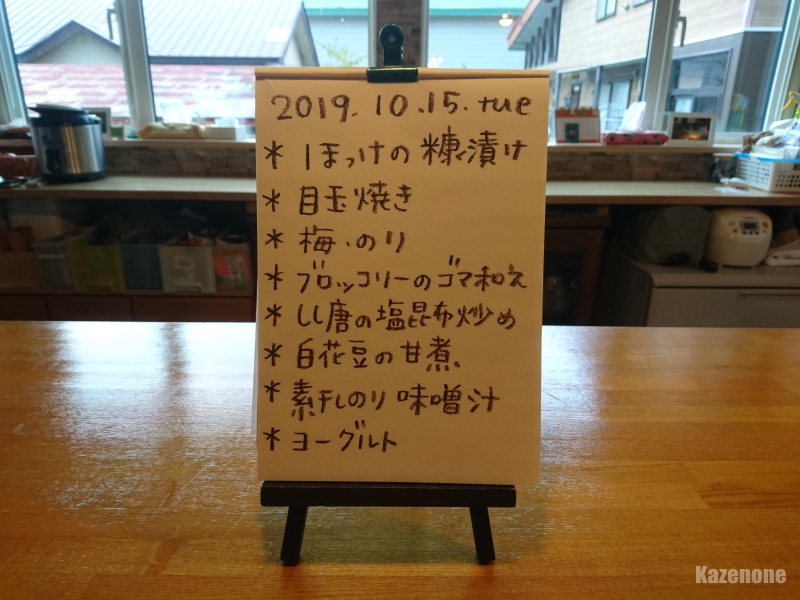 2019.10.15.tue
* ほっけの糠漬け
* 目玉焼き
* 梅・のり
* ブロッコリーのゴマ和え
* しし唐の塩昆布炒め
* 白花豆の甘煮
* 素干しのり味噌汁
* ヨーグルト
Kazenone